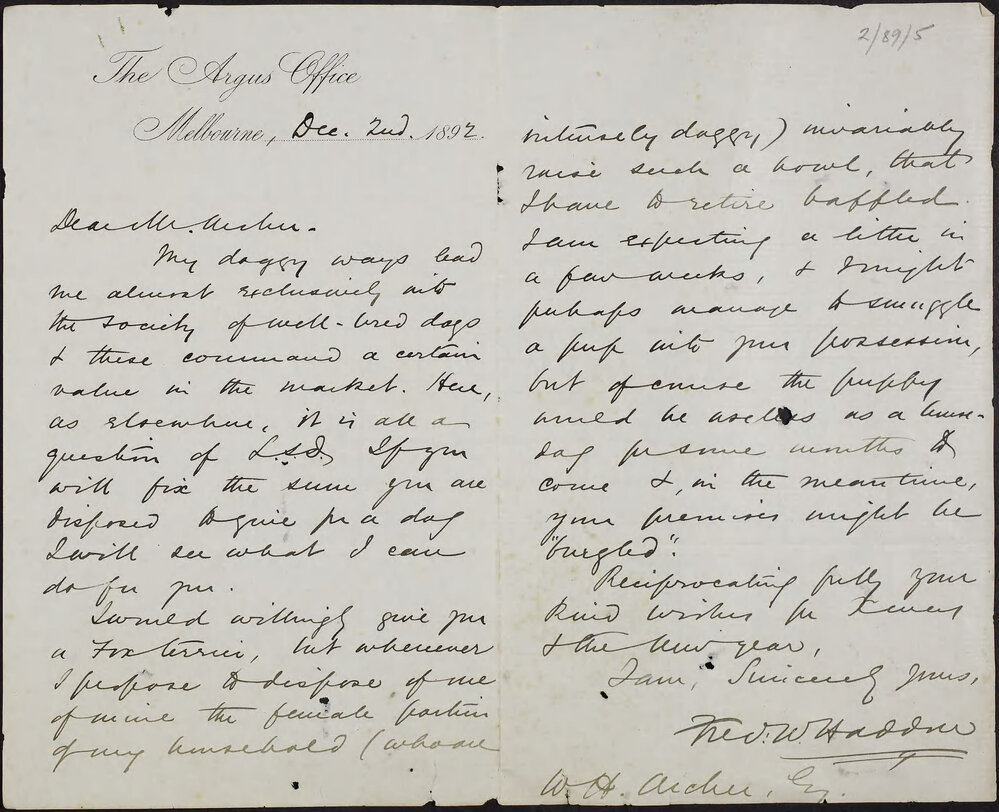 The Argus Office
Melbourne, Dec. 2nd. 1892.
Dear Mr. Archer.
My doggy ways lead
me almost exclusively into
the society of well-bred dogs
& these command a certain
value in the market. Here,
as elsewhere, it is all a
question of L.S.D. If you
will fix the sum you are
disposed to give for a dog
I will see what I can
do for you.
I would willingly give you
a Fox terrier, but whenever
I propose to dispose of one
of mine the female portion
of my household (who are
2/89/5
intensely doggy,) invariably
raise such a howl, that
I have to retire baffled.
I am expecting a litter in
a few weeks, & I might
perhaps manage to smuggle
a pup into your possession,
but of course the puppy
would be useless as a house-
dog for some months to
come &, in the meantime,
your premises might be
"burgled".
Reciprocating fully your
kind wishes for Xmas
& the New year,
I am, Sincerely yours,
Fred. W. Haddon
W. H. Archer, Esq.